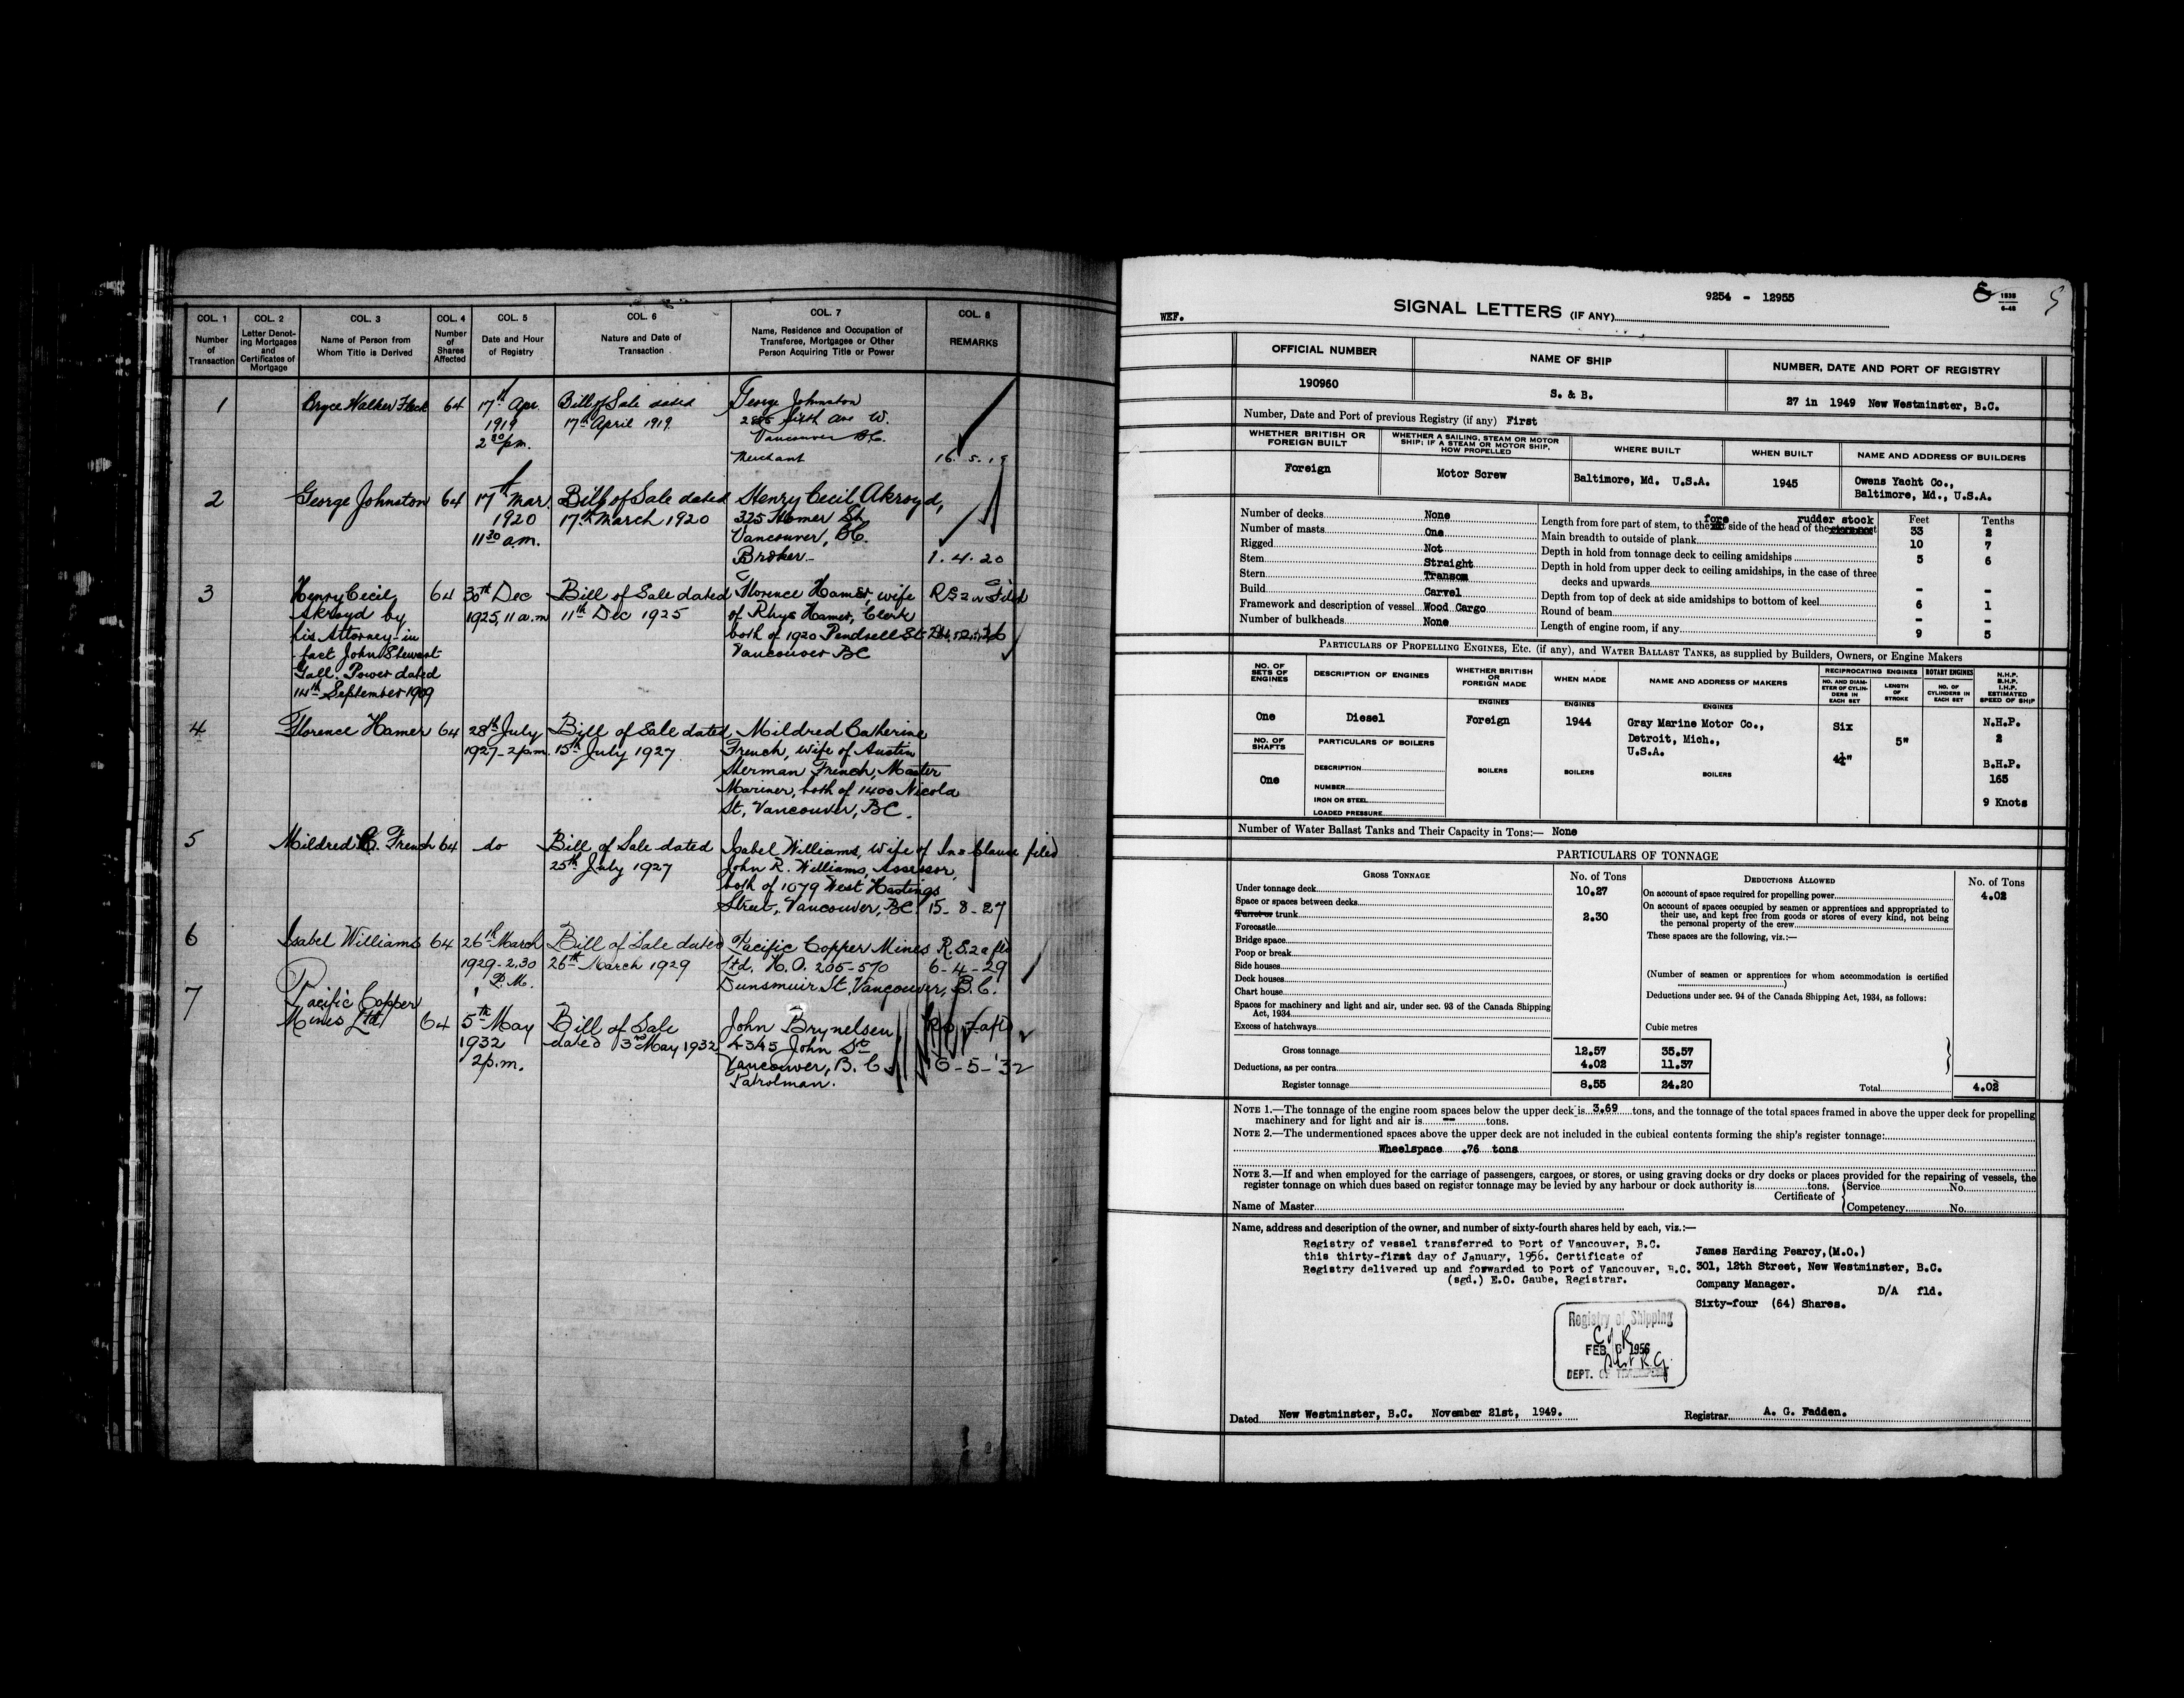 COL. 1
Number
of
Transaction
COL. 2
Letter Denot-
ing Mortgages
and
Certificates of
Mortgage
COL. 3
Name of Person from
Whom Title is Derived
COL. 4
Number
of
Shares
Affected
COL. 5
Date and Hour
of Registry
COL. 6
Nature and Date of
Transaction
COL. 7
Name, Residence and Occupation of
Transferee, Mortgagee or Other
Person Acquiring Title or Power
COL. 8
REMARKS
1
Bryce Walker Fleck
64
17th Apr.
1919
2 30 pm.
Bill of Sale dated
17th April 1919
George Johnston
Sixth Ave W.
Vancouver B.C.
Merchant
16. 5. 19
2
George Johnston
64
17th Mar.
1920
11 30 a.m.
Bill of Sale dated
17th March 1920
Henry Cecil Akroyd,
325 Homer St.
Vancouver, B.C.
Broker
1. 4. 20
3
Henry Cecil
Akroyd by
his Attorney-in
fact John Stewart
Gall. Power dated
14th September 1909
64
30th Dec
1925, 11 a.m
Bill of Sale dated
11th Dec 1925
Florence Hamer, wife
of Rhys Hamer, Clerk
both of 1920 Pendrell St
Vancouver BC
4
Florence Hamer
64
28th July
1927-2pm.
Bill of Sale dated
15th July 1927.
Mildred Catherine
French, wife of Austin
Sherman French, Master
Mariner, both of 1400 Nicola
St, Vancouver, BC.
5
Mildred C. French
64
do
Bill of Sale dated
25th July 1927
Isabel Williams, wife of
John R. Williams, Assessor,
both of 1079 West Hastings
Street, Vancouver, BC.
Ins Clause filed
15-8-27
6
Isabel Williams
64
26th March
1929-2.30
P.M.
Bill of Sale dated
26th March 1929
Pacific Copper Mines
Ltd. H.O. 205-570
Dunsmuir St, Vancouver, B.C.
6-4-29
7
Pacific Copper
Mines Ltd
64
5th May
1932
2p.m.
Bill of Sale
dated 3rd May 1932
John Brynelsen
4345 John St
Vancouver, B.C.
Patrolman.
6-5-'32
WEF.
SIGNAL LETTERS (IF ANY)
9254 - 12955
1935
6-48
5
OFFICIAL NUMBER
190960
NAME OF SHIP
S. & B.
NUMBER, DATE AND PORT OF REGISTRY
27 in 1949 New Westminster, B.C.
Number, Date and Port of previous Registry (if any) First
WHETHER BRITISH OR
FOREIGN BUILT
Foreign
WHETHER A SAILING, STEAM OR MOTOR
SHIP; IF A STEAM OR MOTOR SHIP,
HOW PROPELLED
Motor Screw
WHERE BUILT
Baltimore, Md. U.S.A.
WHEN BUILT
1945
NAME AND ADDRESS OF BUILDERS
Owens Yacht Co.,
Baltimore, Md., U.S.A.
Number of decks None
Number of masts One
Rigged Not
Stem Straight
Stern Transom
Build Carvel
Framework and description of vessel Wood Cargo
Number of bulkheads None
Feet Tenths
fore rudder stock
Length from fore part of stem, to the aft side of the head of the stern post 33 2
Main breadth to outside of plank 10 7
Depth in hold from tonnage deck to ceiling amidships 5 6
Depth in hold from upper deck to ceiling amidships, in the case of three
decks and upwards - -
Depth from top of deck at side amidships to bottom of keel 6 1
Round of beam - -
Length of engine room, if any 9 5
PARTICULARS OF PROPELLING ENGINES, Etc. (if any), and WATER BALLAST TANKS, as supplied by Builders, Owners, or Engine Makers
NO. OF
SETS OF
ENGINES
One
NO. OF
SHAFTS
One
DESCRIPTION OF ENGINES
Diesel
PARTICULARS OF BOILERS
DESCRIPTION
NUMBER
IRON OR STEEL
LOADED PRESSURE
WHETHER BRITISH
OR
FOREIGN MADE
ENGINES
Foreign
BOILERS
WHEN MADE
ENGINES
1944
BOILERS
NAME AND ADDRESS OF MAKERS
ENGINES
Gray Marine Motor Co.,
Detroit, Mich.,
U.S.A.
BOILERS
RECIPROCATING ENGINES
NO. AND DIAM-
ETER OF CYLIN-
DERS IN
EACH SET
Six
4¼"
LENGTH
OF
STROKE
5"
ROTARY ENGINES
NO. OF
CYLINDERS IN
EACH SET
N.H.P.
B.H.P.
I.H.P.
ESTIMATED
SPEED OF SHIP
N.H.P.
2
B.H.P.
165
9 Knots
Number of Water Ballast Tanks and Their Capacity in Tons:— None
PARTICULARS OF TONNAGE
GROSS TONNAGE
No. of Tons
Under tonnage deck 10.27
Space or spaces between decks
Turret or trunk 2.30
Forecastle
Bridge space
Poop or break
Side houses
Deck houses
Chart house
Spaces for machinery and light and air, under sec. 93 of the Canada Shipping
Act, 1934
Excess of hatchways
Cubic metres
Gross tonnage 12.57 35.57
Deductions, as per contra 4.02 11.37
Register tonnage 8.55 24.20
DEDUCTIONS ALLOWED
No. of Tons
On account of space required for propelling power 4.02
On account of spaces occupied by seamen or apprentices and appropriated to
their use, and kept free from goods or stores of every kind, not being
the personal property of the crew
These spaces are the following, viz.:—
(Number of seamen or apprentices for whom accommodation is certified
)
Deductions under sec. 94 of the Canada Shipping Act, 1934, as follows:
Total 4.02
NOTE 1.—The tonnage of the engine room spaces below the upper deck is 3.69 tons, and the tonnage of the total spaces framed in above the upper deck for propelling
machinery and for light and air is — tons.
NOTE 2.—The undermentioned spaces above the upper deck are not included in the cubical contents forming the ship's register tonnage:
Wheelspace .76 tons
NOTE 3.—If and when employed for the carriage of passengers, cargoes, or stores, or using graving docks or dry docks or places provided for the repairing of vessels, the
register tonnage on which dues based on register tonnage may be levied by any harbour or dock authority is tons.
Name of Master
Certificate of
Service No.
Competency No.
Name, address and description of the owner, and number of sixty-fourth shares held by each, viz.:—
Registry of vessel transferred to Port of Vancouver, B.C.
this thirty-first day of January, 1956. Certificate of
Registry delivered up and forwarded to Port of Vancouver, B.C.
(sgd.) E.O. Gaube, Registrar.
James Harding Pearcy,(M.O.)
301, 12th Street, New Westminster, B.C.
Company Manager.
D/A fld.
Sixty-four (64) Shares.
Registry of Shipping
FEB 1956
DEPT. OF TRANSPORT
Dated New Westminster, B.C. November 21st, 1949.
Registrar A. G. Fadden.